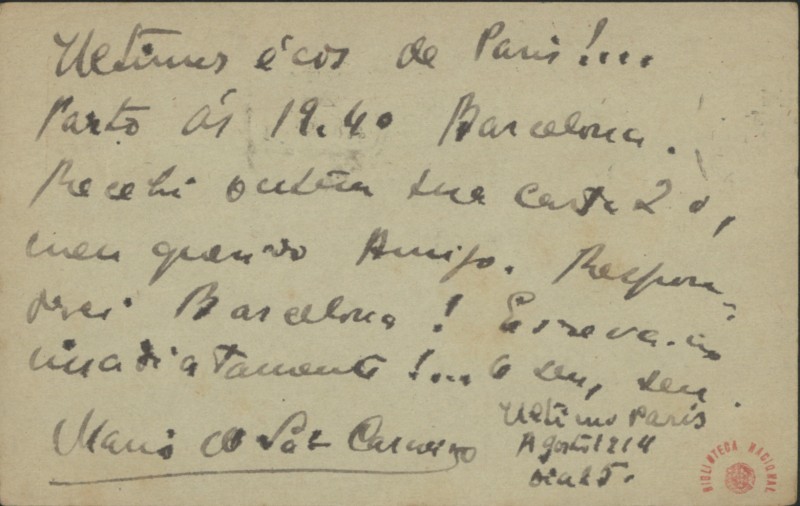 Ultimos écos de Paris!...
Parto ás 19.40 Barcelona.
Recebi ontem sua carta 20,
meu querido Amigo. Respon-
derei Barcelona! Escreva-me
imediatamente!... O seu, seu
Mario de Sá-Carneiro
Ultimo Paris
Agosto 1914
dia
BIBLIOTECA NACIONAL